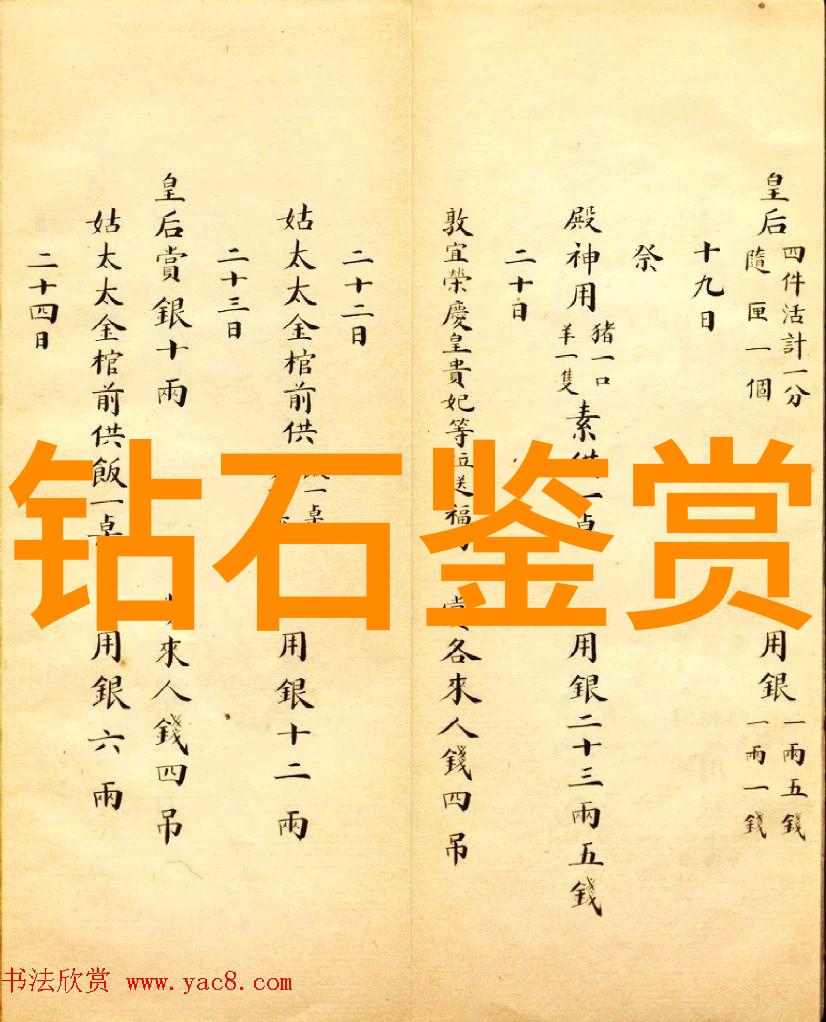 皇后四件活計一分隨匣一個 用銀一兩五錢一兩一錢
十九日
祭
殿神用猪一口羊一隻素供一桌 用銀二十三兩五錢
二十日
敦宜榮慶皇貴妃等位送福 賞各來人錢四吊
二十二日
姑太太金棺前供飯一桌 用銀十二兩
二十三日
皇后賞銀十兩 來人錢四吊
姑太太金棺前供飯一桌 用銀六兩
二十四日
钻石鉴赏
书法欣赏 www.yac8.com